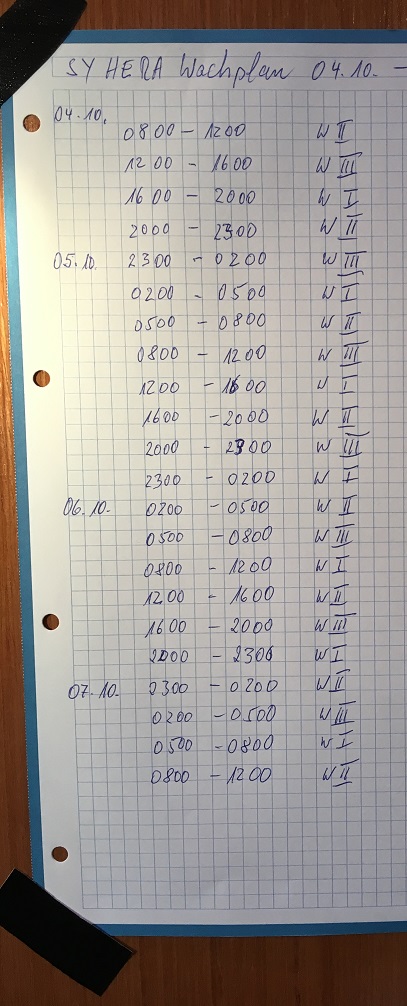 SY HERA Wachplan 04.10. -
04.10.
0800 - 1200 W II
1200 - 1600 W III
1600 - 2000 W I
2000 - 2300 W II
05.10. 2300 - 0200 W III
0200 - 0500 W I
0500 - 0800 W II
0800 - 1200 W III
1200 - 1600 W I
1600 - 2000 W II
2000 - 2300 W III
2300 - 0200 W I
06.10. 0200 - 0500 W II
0500 - 0800 W III
0800 - 1200 W I
1200 - 1600 W II
1600 - 2000 W III
2000 - 2300 W I
07.10. 2300 - 0200 W II
0200 - 0500 W III
0500 - 0800 W I
0800 - 1200 W II